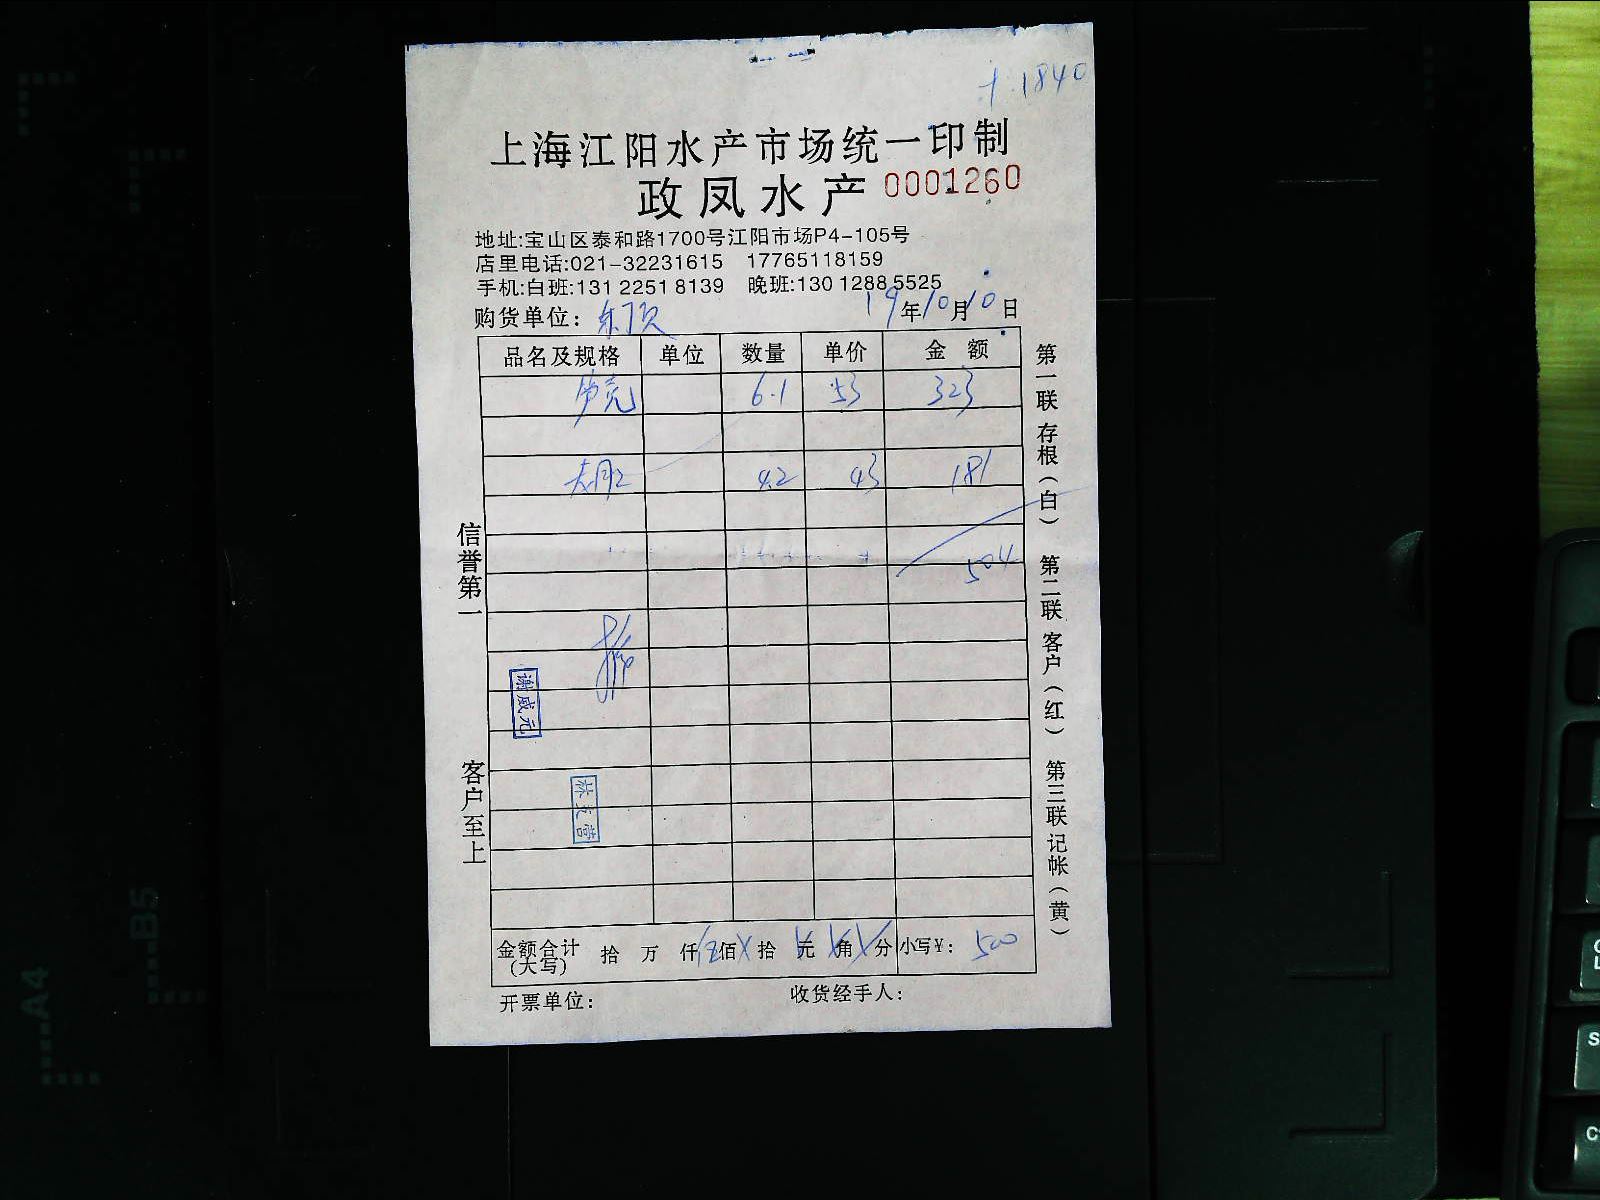 1840
上海江阳水产市场统一印制
政凤水产 0001260
地址:宝山区泰和路1700号江阳市场P4-105号
店里电话:021-32231615 17765118159
手机:白班:131 2251 8139 晚班:130 1288 5525
购货单位: 19年10月10日
品名及规格 单位 数量 单价 金额
6.1 53 323
42 43 181
504
信誉第一
客户至上
谢威元
金额合计(大写) 拾 万 仟 伍佰 拾 元 角 分 小写¥: 500
开票单位: 收货经手人:
第一联 存根(白) 第二联 客户(红) 第三联 记帐(黄)
A4
B5